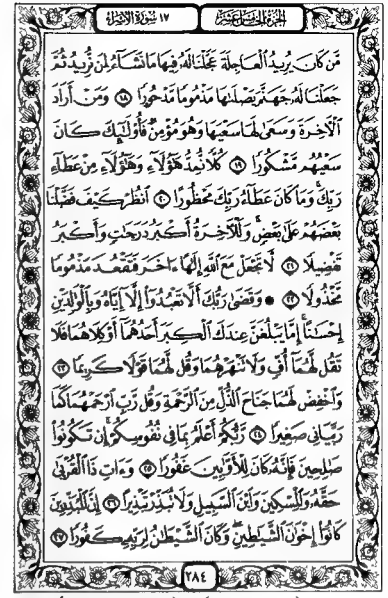 ١٧ سورة الإسراء
الجزء الخامس عشر
مَّن كَانَ يُرِيدُ ٱلْعَاجِلَةَ عَجَّلْنَا لَهُۥ فِيهَا مَا نَشَآءُ لِمَن نُّرِيدُ ثُمَّ
جَعَلْنَا لَهُۥ جَهَنَّمَ يَصْلَىٰهَا مَذْمُومًا مَّدْحُورًا ١٨ وَمَنْ أَرَادَ
ٱلْأَخِرَةَ وَسَعَىٰ لَهَا سَعْيَهَا وَهُوَ مُؤْمِنٌ فَأُو۟لَٰٓئِكَ كَانَ
سَعْيُهُم مَّشْكُورًا ١٩ كُلًّا نُّمِدُّ هَٰٓؤُلَآءِ وَهَٰٓؤُلَآءِ مِنْ عَطَآءِ
رَبِّكَ ۚ وَمَا كَانَ عَطَآءُ رَبِّكَ مَحْظُورًا ٢٠ ٱنظُرْ كَيْفَ فَضَّلْنَا
بَعْضَهُمْ عَلَىٰ بَعْضٍ ۚ وَلَلْأَخِرَةُ أَكْبَرُ دَرَجَٰتٍ وَأَكْبَرُ
تَفْضِيلًا ٢١ لَّا تَجْعَلْ مَعَ ٱللَّهِ إِلَٰهًا ءَاخَرَ فَتَقْعُدَ مَذْمُومًا
مَّخْذُولًا ٢٢ ۞ وَقَضَىٰ رَبُّكَ أَلَّا تَعْبُدُوٓا۟ إِلَّآ إِيَّاهُ وَبِٱلْوَٰلِدَيْنِ
إِحْسَٰنًا ۚ إِمَّا يَبْلُغَنَّ عِندَكَ ٱلْكِبَرَ أَحَدُهُمَآ أَوْ كِلَاهُمَا فَلَا
تَقُل لَّهُمَآ أُفٍّ وَلَا تَنْهَرْهُمَا وَقُل لَّهُمَا قَوْلًا كَرِيمًا ٢٣
وَٱخْفِضْ لَهُمَا جَنَاحَ ٱلذُّلِّ مِنَ ٱلرَّحْمَةِ وَقُل رَّبِّ ٱرْحَمْهُمَا كَمَا
رَبَّيَانِى صَغِيرًا ٢٤ رَّبُّكُمْ أَعْلَمُ بِمَا فِى نُفُوسِكُمْ ۚ إِن تَكُونُوا۟
صَٰلِحِينَ فَإِنَّهُۥ كَانَ لِلْأَوَّٰبِينَ غَفُورًا ٢٥ وَءَاتِ ذَا ٱلْقُرْبَىٰ
حَقَّهُۥ وَٱلْمِسْكِينَ وَٱبْنَ ٱلسَّبِيلِ وَلَا تُبَذِّرْ تَبْذِيرًا ٢٦ إِنَّ ٱلْمُبَذِّرِينَ
كَانُوٓا۟ إِخْوَٰنَ ٱلشَّيَٰطِينِ ۖ وَكَانَ ٱلشَّيْطَٰنُ لِرَبِّهِۦ كَفُورًا ٢٧
٢٨٤